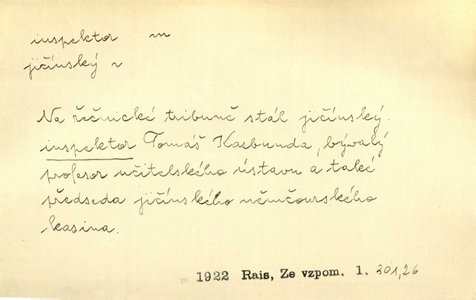 inspektor m
jičínský v
Na řečnické tribuně stál jičínský
inspektor Tomáš Kasbunda, bývalý
profesor učitelského ústavu a také
předseda jičínského němčovského
kasina.
1922 Rais, Ze vzpom. 1. 201,26